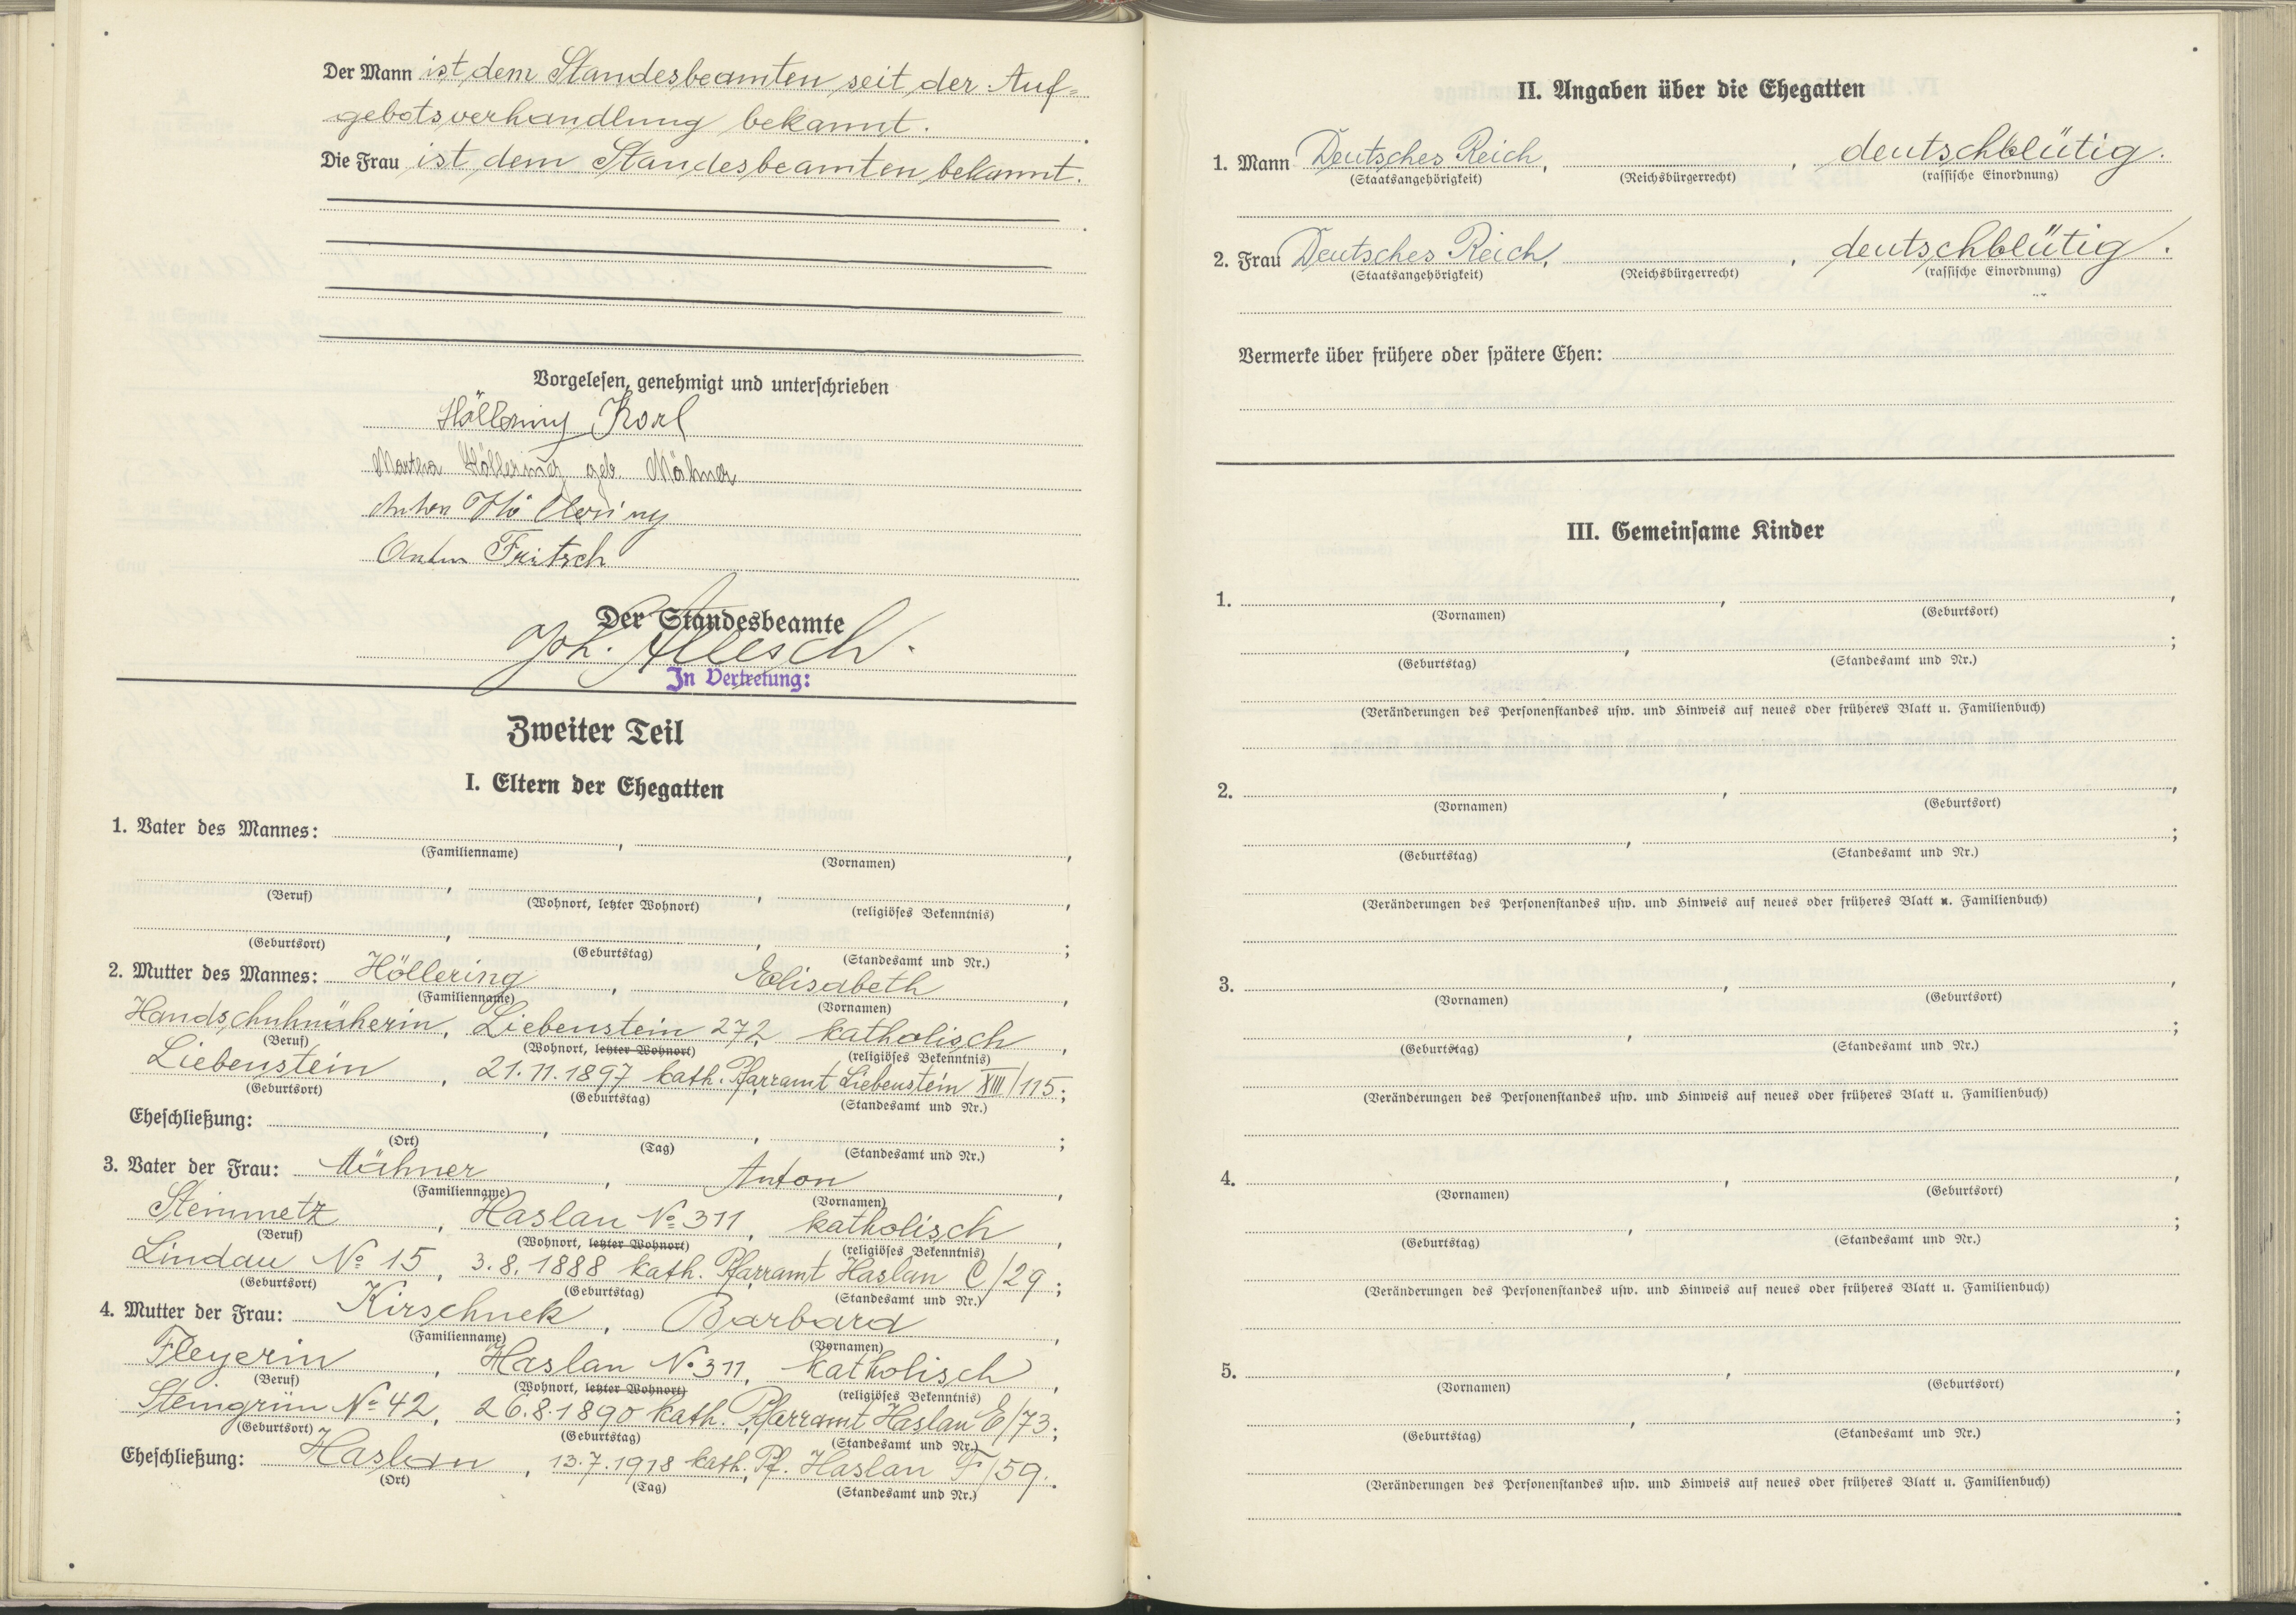 Der Mann ist dem Standesbeamten seit der Auf=
gebotsverhandlung bekannt.
Die Frau ist dem Standesbeamten bekannt.
Vorgelesen, genehmigt und unterschrieben
Höllering Karl
Martha Höllering geb. Mähner
Anton Höllering
Anton Fritsch
Der Standesbeamte
Joh. Allesch.
In Vertretung:
Zweiter Teil
I. Eltern der Ehegatten
1. Vater des Mannes: ,
(Familienname) (Vornamen)
(Beruf) (Wohnort, letzter Wohnort) (religiöses Bekenntnis)
(Geburtsort) (Geburtstag) (Standesamt und Nr.)
2. Mutter des Mannes: Höllering, Elisabeth,
(Familienname) (Vornamen)
Handschuhnäherin, Liebenstein 272, katholisch,
(Beruf) (Wohnort, letzter Wohnort) (religiöses Bekenntnis)
Liebenstein, 21.11.1897 kath. Pfarramt Liebenstein XIII/115;
(Geburtsort) (Geburtstag) (Standesamt und Nr.)
Eheschließung: , , ;
(Ort) (Tag) (Standesamt und Nr.)
3. Vater der Frau: Mähner, Anton,
(Familienname) (Vornamen)
Steinmetz, Haslau No 311, katholisch,
(Beruf) (Wohnort, letzter Wohnort) (religiöses Bekenntnis)
Lindau No 15, 3.8.1888 kath. Pfarramt Haslau C/29;
(Geburtsort) (Geburtstag) (Standesamt und Nr.)
4. Mutter der Frau: Kirschnek, Barbara,
(Familienname) (Vornamen)
Fleyerin, Haslau No 311, katholisch,
(Beruf) (Wohnort, letzter Wohnort) (religiöses Bekenntnis)
Steingrün No 42, 26.8.1890 kath. Pfarramt Haslau E/73;
(Geburtsort) (Geburtstag) (Standesamt und Nr.)
Eheschließung: Haslau, 13.7.1918 kath. Pf. Haslau F/59.
(Ort) (Tag) (Standesamt und Nr.)
II. Angaben über die Ehegatten
1. Mann Deutsches Reich, , deutschblütig.
(Staatsangehörigkeit) (Reichsbürgerrecht) (rassische Einordnung)
2. Frau Deutsches Reich, , deutschblütig.
(Staatsangehörigkeit) (Reichsbürgerrecht) (rassische Einordnung)
Vermerke über frühere oder spätere Ehen:
III. Gemeinsame Kinder
1. , ,
(Vornamen) (Geburtsort)
(Geburtstag) (Standesamt und Nr.)
(Veränderungen des Personenstandes usw. und Hinweis auf neues oder früheres Blatt u. Familienbuch)
2. , ,
(Vornamen) (Geburtsort)
(Geburtstag) (Standesamt und Nr.)
(Veränderungen des Personenstandes usw. und Hinweis auf neues oder früheres Blatt u. Familienbuch)
3. , ,
(Vornamen) (Geburtsort)
(Geburtstag) (Standesamt und Nr.)
(Veränderungen des Personenstandes usw. und Hinweis auf neues oder früheres Blatt u. Familienbuch)
4. , ,
(Vornamen) (Geburtsort)
(Geburtstag) (Standesamt und Nr.)
(Veränderungen des Personenstandes usw. und Hinweis auf neues oder früheres Blatt u. Familienbuch)
5. , ,
(Vornamen) (Geburtsort)
(Geburtstag) (Standesamt und Nr.)
(Veränderungen des Personenstandes usw. und Hinweis auf neues oder früheres Blatt u. Familienbuch)